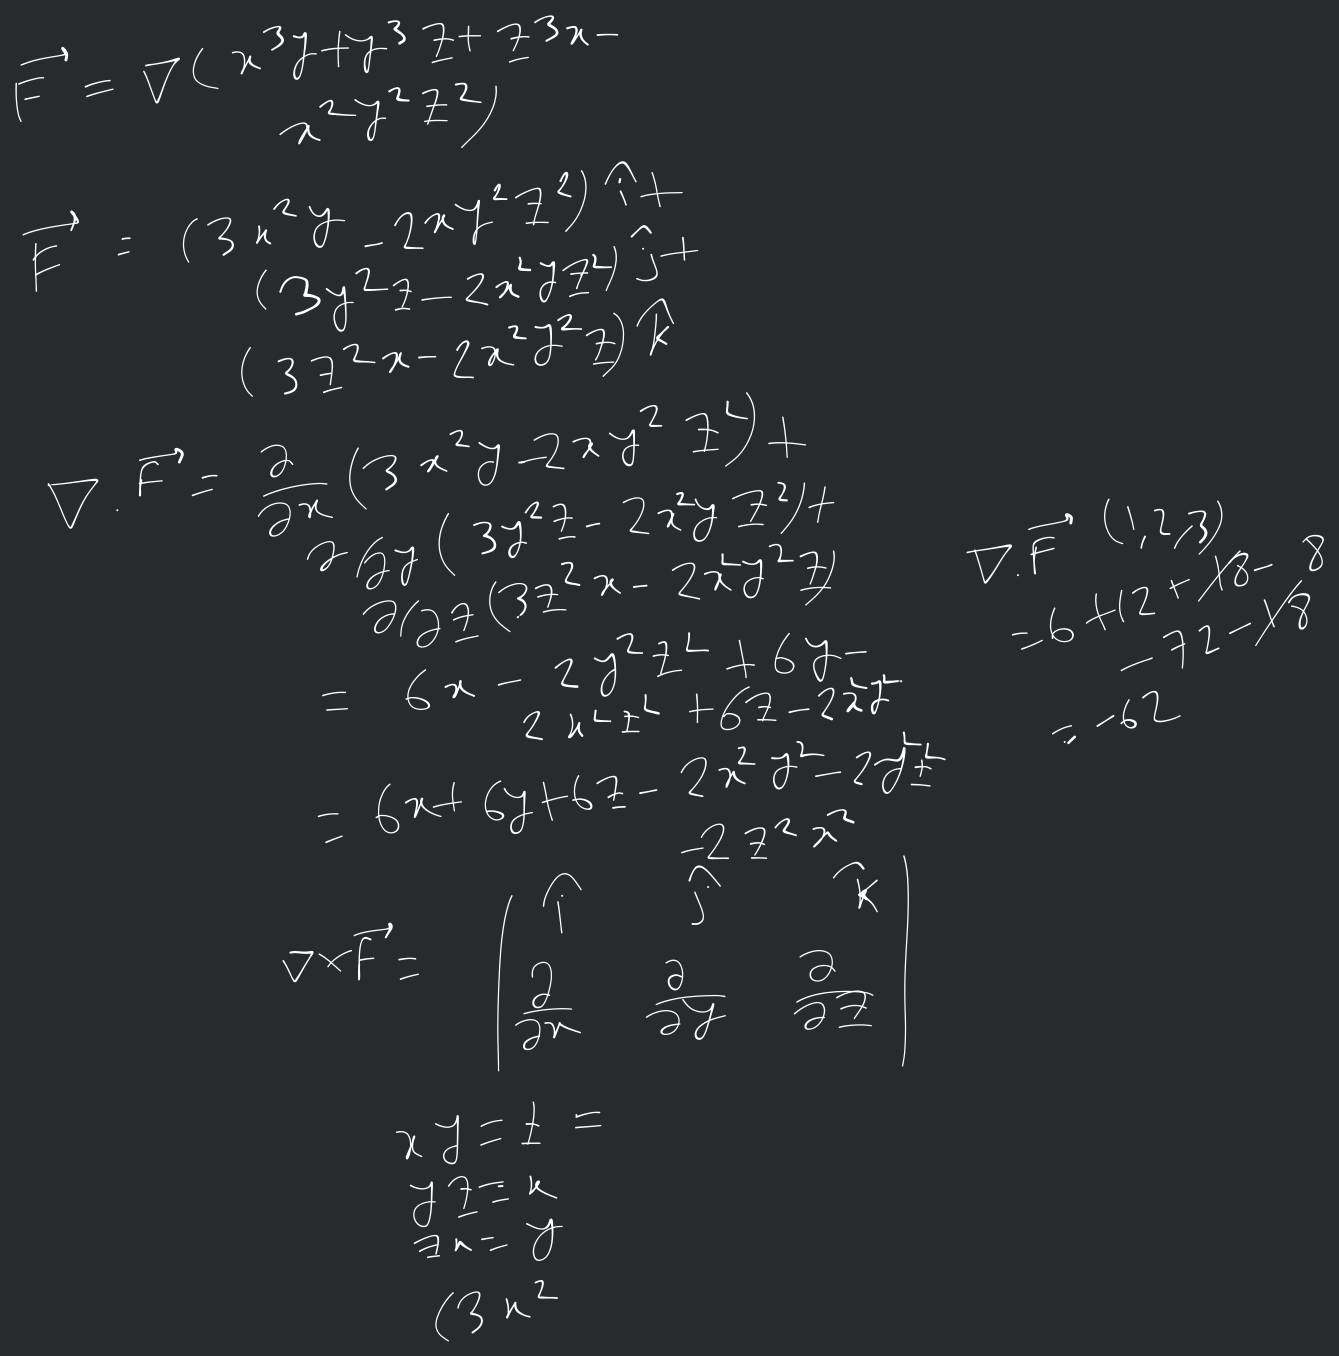 F⃗ = ∇(x³y+y³z+z³x−
x²y²z²)
F⃗ = (3x²y−2xy²z²)î+
(3y²z−2x²yz²)ĵ+
(3z²x−2x²y²z)k̂
∇.F⃗ = ∂/∂x(3x²y−2xy²z²)+
∂/∂y(3y²z−2x²yz²)+
∂/∂z(3z²x−2x²y²z)
= 6x−2y²z²+6y−
2x²z²+6z−2x²y²
= 6x+6y+6z−2x²y²−2y²z²
−2z²x²
∇.F⃗ (1,2,3)
=6+12+18−8
−72−18
=−62
î ĵ k̂
∇×F⃗ = ∂/∂x ∂/∂y ∂/∂z
xy=z=
yz=x
zx=y
(3x²